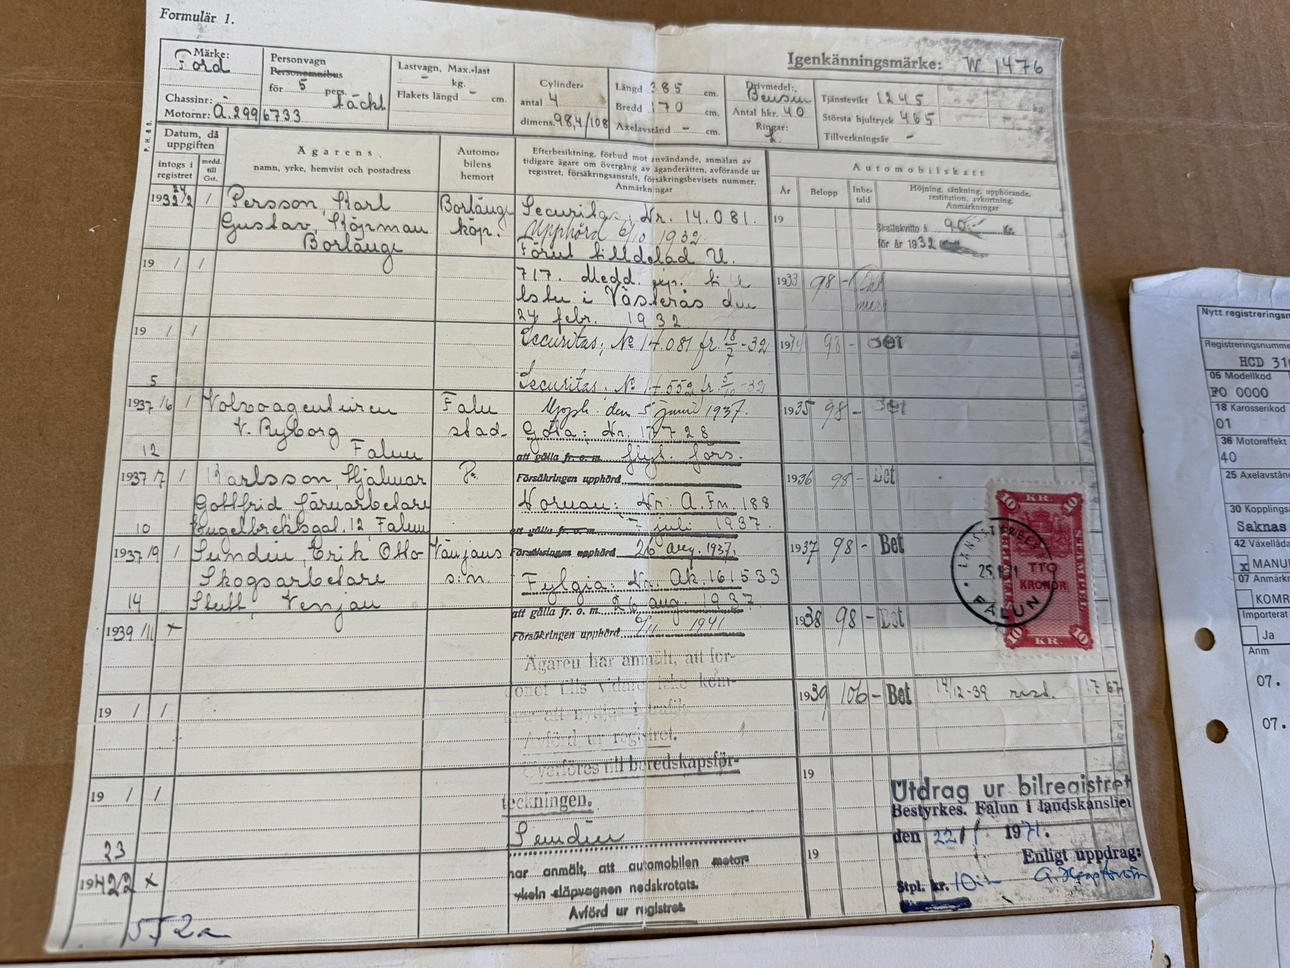 Formulär 1.
Igenkänningsmärke: W 1476
Märke:
Ford
Chassinr:
Motornr: A.2996733
Personvagn
Personomnibus
för 5 pers.
täckt
Lastvagn, Max.-last
- kg.
Flakets längd - cm.
Cylinder-
antal 4
dimens. 98,4/108
Längd 385 cm.
Bredd 170 cm.
Axelavstånd - cm.
Drivmedel:
Bensin
Antal hkr. 40
Ringar:
Tjänstevikt 1245 kg.
Största hjultryck 465
Tillverkningsår -
Datum, då
uppgiften
intogs i
registret
medd.
till
Ägarens
namn, yrke, hemvist och postadress
Automo-
bilens
hemort
Efterbesiktning, förbud mot användande, anmälan av
tidigare ägare om övergång av äganderätten, avförande ur
registret, försäkringsanstalt, försäkringsbevisets nummer.
Anmärkningar
Automobilskatt
År
Belopp
Inbe-
tald
Höjning, sänkning, upphörande,
restitution, avkortning.
Anmärkningar
24
1932/2 /
Persson, Karl
Gustav, Köpman
Borlänge
Borlänge
köp.
Securitas, Nr. 14.081.
Upphörd 1932.
Förut tilldelad U.
717. Medd. till
lsty i Västerås den
24 febr. 1932
19
Skattekvitto å 90 Kr.
för år 1932
19 / /
1933 98 -
19 / /
Securitas, No 14.081 fr. 18/7 -32
1934 98 - Bet
Securitas. No 14552 fr -32
5
1937/6 /
Volvoagenturen
V. Ryborg
Falun
Falu
stad
Upph. den 5 juni 1937.
Göta: Nr.
att gälla fr. o. m. förs.
1935 98 - Bet
12
1937/7 /
Karlsson, Hjalmar
Gottfrid Järnarbetare
Engelbreksgat. 12 Falun
Försäkringen upphörd
Nornan: Nr. A. Fn. 188
att gälla fr. o. m. juli 1937.
1936 98 - Bet
10
1937/9 /
Lundin, Erik Otto
Skogsarbetare
Venjan
Vänjans
s:n.
Försäkringen upphörd 26 aug. 1937.
Fylgia: Nr. Ak. 161533
att gälla fr. o. m. 26 aug. 1937.
1937 98 - Bet
14
1939/11 x
Försäkringen upphörd 1941
1938 98 - Bet
Ägaren har anmält, att for-
donet tills vidare icke kom-
mer att nyttjas i trafik.
Avförd ur registret.
Överföres till beredskapsför-
teckningen.
1939 106 - Bet 14/12-39 rest. 17 67
19 / /
19
19 / /
Lundin
har anmält, att automobilen motor-
cykeln släpvagnen nedskrotats.
Avförd ur registret.
19
23
1942 x
10 KR. 10
TIO
KRONOR
10 KR. 10
LÄNSSTYRELSEN
FALUN
Utdrag ur bilregistret
Bestyrkes. Falun i landskansliet
den 22/1 1971.
Enligt uppdrag:
Stpl. kr. 10:-
Nytt registreringsn
Registreringsnumme
HCD 31
05 Modellkod
FO 0000
18 Karosserikod
01
36 Motoreffekt
40
25 Axelavstån
30 Kopplings
Saknas
42 Växellåda
x MANU
07 Anmärkn
KOMR
Importerat
Ja
Anm
07.
07.